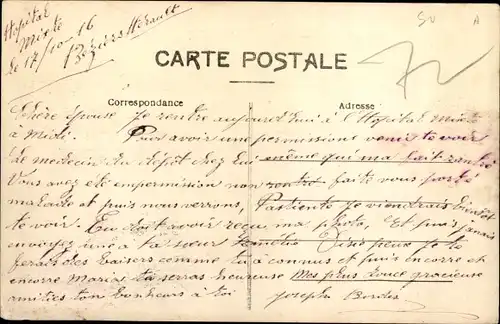 Hopital
Mixte
le 17/10-16
Beziers Herault
72
CARTE POSTALE
Correspondance
Adresse
Chère épouse Je rentre aujourd'hui à l'Hopital Mixte
à Midi. Pour avoir une permissione venir te voir
Le medecin du dépôt chez lui même qui ma fait rentré
Vous avez été empermission non rentré faite vous porté
malade et puis nous verrons, Patiente Je viendrais bientôt
te voir. Tu doit avoir reçu ma photo, Et puis
envoyez une à ta sœur
ferais des baisers comme tu à connus et puis encore et
encore Maria tu serras heureuse Mes plus douce gracieuse
amitiées ton bonheurs à toi Joseph Bordes